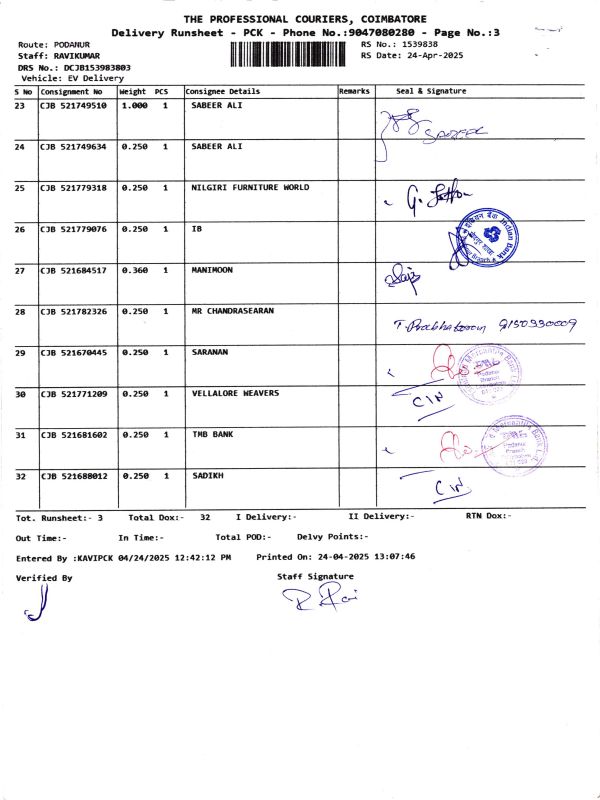 THE PROFESSIONAL COURIERS, COIMBATORE
Delivery Runsheet - PCK - Phone No.:9047080280 - Page No.:3
Route: PODANUR
RS No.: 1539838
Staff: RAVIKUMAR
RS Date: 24-Apr-2025
DRS No.: DCJB153983803
Vehicle: EV Delivery
S No Consignment No Weight PCS Consignee Details Remarks Seal & Signature
23 CJB 521749510 1.000 1 SABEER ALI
24 CJB 521749634 0.250 1 SABEER ALI
25 CJB 521779318 0.250 1 NILGIRI FURNITURE WORLD
26 CJB 521779076 0.250 1 IB
Indian Bank
27 CJB 521684517 0.360 1 MANIMOON
28 CJB 521782326 0.250 1 MR CHANDRASEARAN
T. Prabhakaran 9150330009
29 CJB 521670445 0.250 1 SARANAN
Podanur
Branch
30 CJB 521771209 0.250 1 VELLALORE WEAVERS
C I N
31 CJB 521681602 0.250 1 TMB BANK
Podanur
Branch
32 CJB 521688012 0.250 1 SADIKH
C I N
Tot. Runsheet:- 3 Total Dox:- 32 I Delivery:- II Delivery:- RTN Dox:-
Out Time:- In Time:- Total POD:- Delvy Points:-
Entered By :KAVIPCK 04/24/2025 12:42:12 PM Printed On: 24-04-2025 13:07:46
Verified By Staff Signature